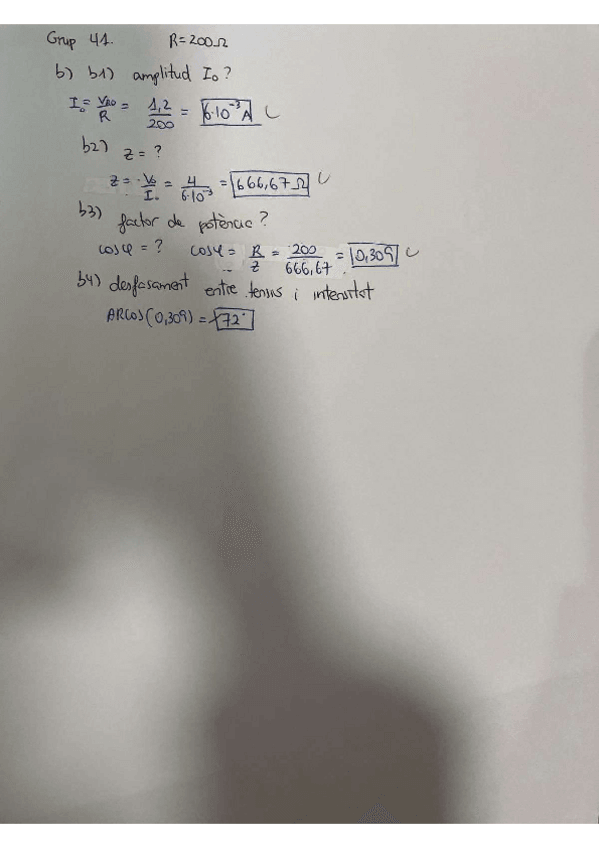 Grup 41. R=200Ω
b) b1) amplitud I₀?
I₀ = V_R0/R = 1,2/200 = 6·10⁻³A
b2) z = ?
z = V₀/I₀ = 4/6·10⁻³ = 666,67 Ω
b3) factor de potència?
cosφ = ? cosφ = R/z = 200/666,67 = 0,309
b4) desfasament entre tensió i intensitat
ARCOS(0,309) = 72°